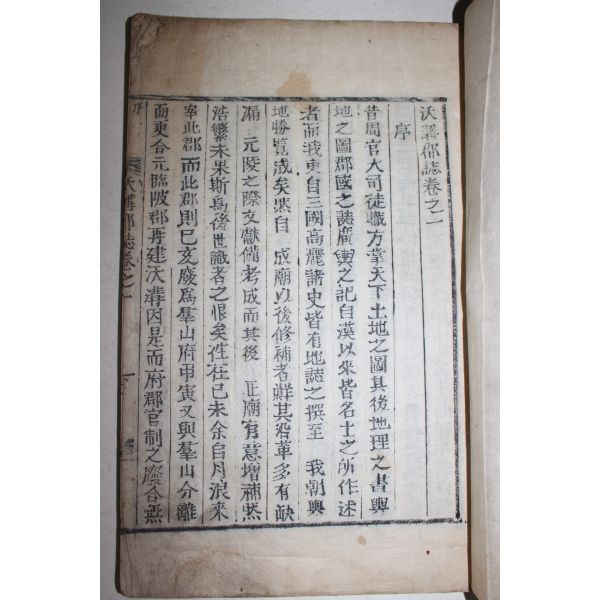 沃溝郡誌卷之一
序
昔周官大司徒職方掌天下土地之圖其後地理之書輿
地之圖郡國之誌廣輿之記自漢以來皆名士之所作述
者而我東自三國高麗諸史皆有地誌之撰至 我朝輿
地勝覽成矣然自 成廟以後修補者鮮其沿革多有缺
漏 元陵之際文獻備考成而其後 正廟有意增補然
浩繁未果斯爲後世識者之恨矣徃在己未余自月浪來
宰此郡而此郡則已文廢爲羣山府甲寅又與羣山分離
而更合元臨陂郡再建沃溝因是而府郡官制之廢合無
沃溝郡誌卷之一
序
一